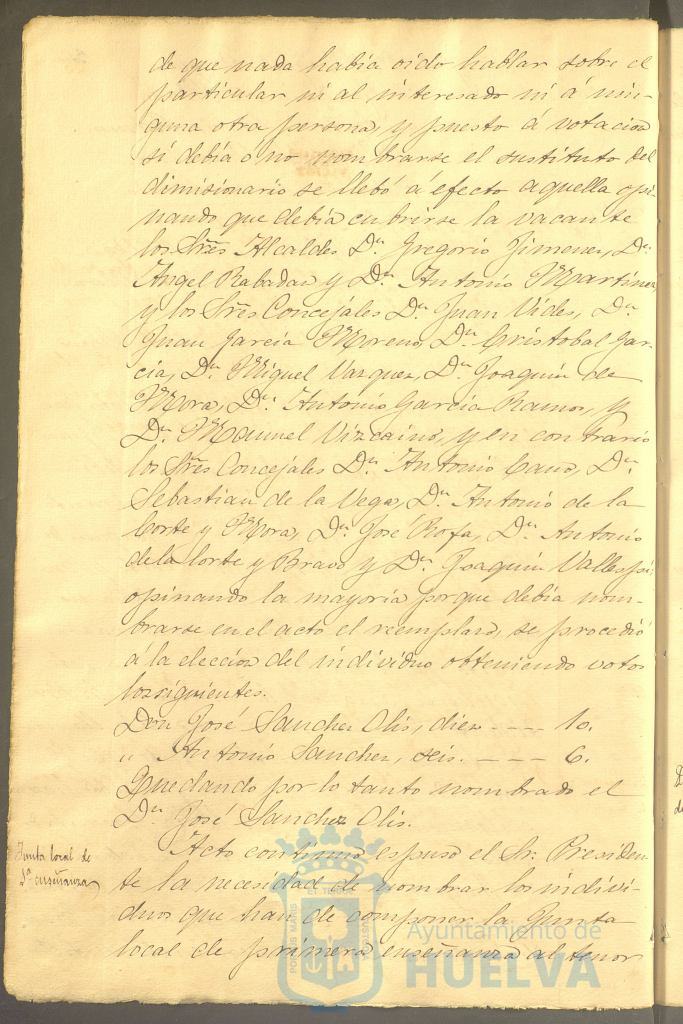 de que nada había oido hablar sobre el
particular ni al interesado ni á nin-
guna otra persona, y puesto á votacion
si debia o no nombrarse el sustituto del
dimisionario se llebó á efecto aquella opi-
nando que debia cubrirse la vacante
los Sres Alcaldes Dn. Gregorio Jimenez, Dn.
Angel Rabadan y Dn. Antonio Martinez
y los Sres Concejales Dn. Juan Vides, Dn.
Juan Garcia Moreno, Dn. Cristobal Gar-
cia, Dn. Miguel Vazquez, Dn. Joaquin de
Mora, Dn. Antonio Garcia Ramos, y
Dn. Manuel Vizcaino, y en contrario
los Sres Concejales Dn. Antonio Cano, Dn.
Sebastian de la Vega, Dn. Antonio de la
Corte y Mora, Dn. José Rofa, Dn. Antonio
de la Corte y Bravo y Dn. Joaquin Vallespi;
opinando la mayoria porque debia nom-
brarse en el acto el reemplazo, se procedió
á la eleccion del individuo obteniendo votos
los siguientes.
Don José Sanchez Olis, diez ---- 10.
" Antonio Sanchez, seis. --- 6.
Quedando por lo tanto nombrado el
Dn. José Sanchez Olis.
Junta local de
1ª enseñanza
Acto continuo espuso el Sr. Presiden-
te la necesidad de nombrar los indivi-
duos que han de componer la Junta
local de primera enseñanza al tenor
Ayuntamiento de
HUELVA